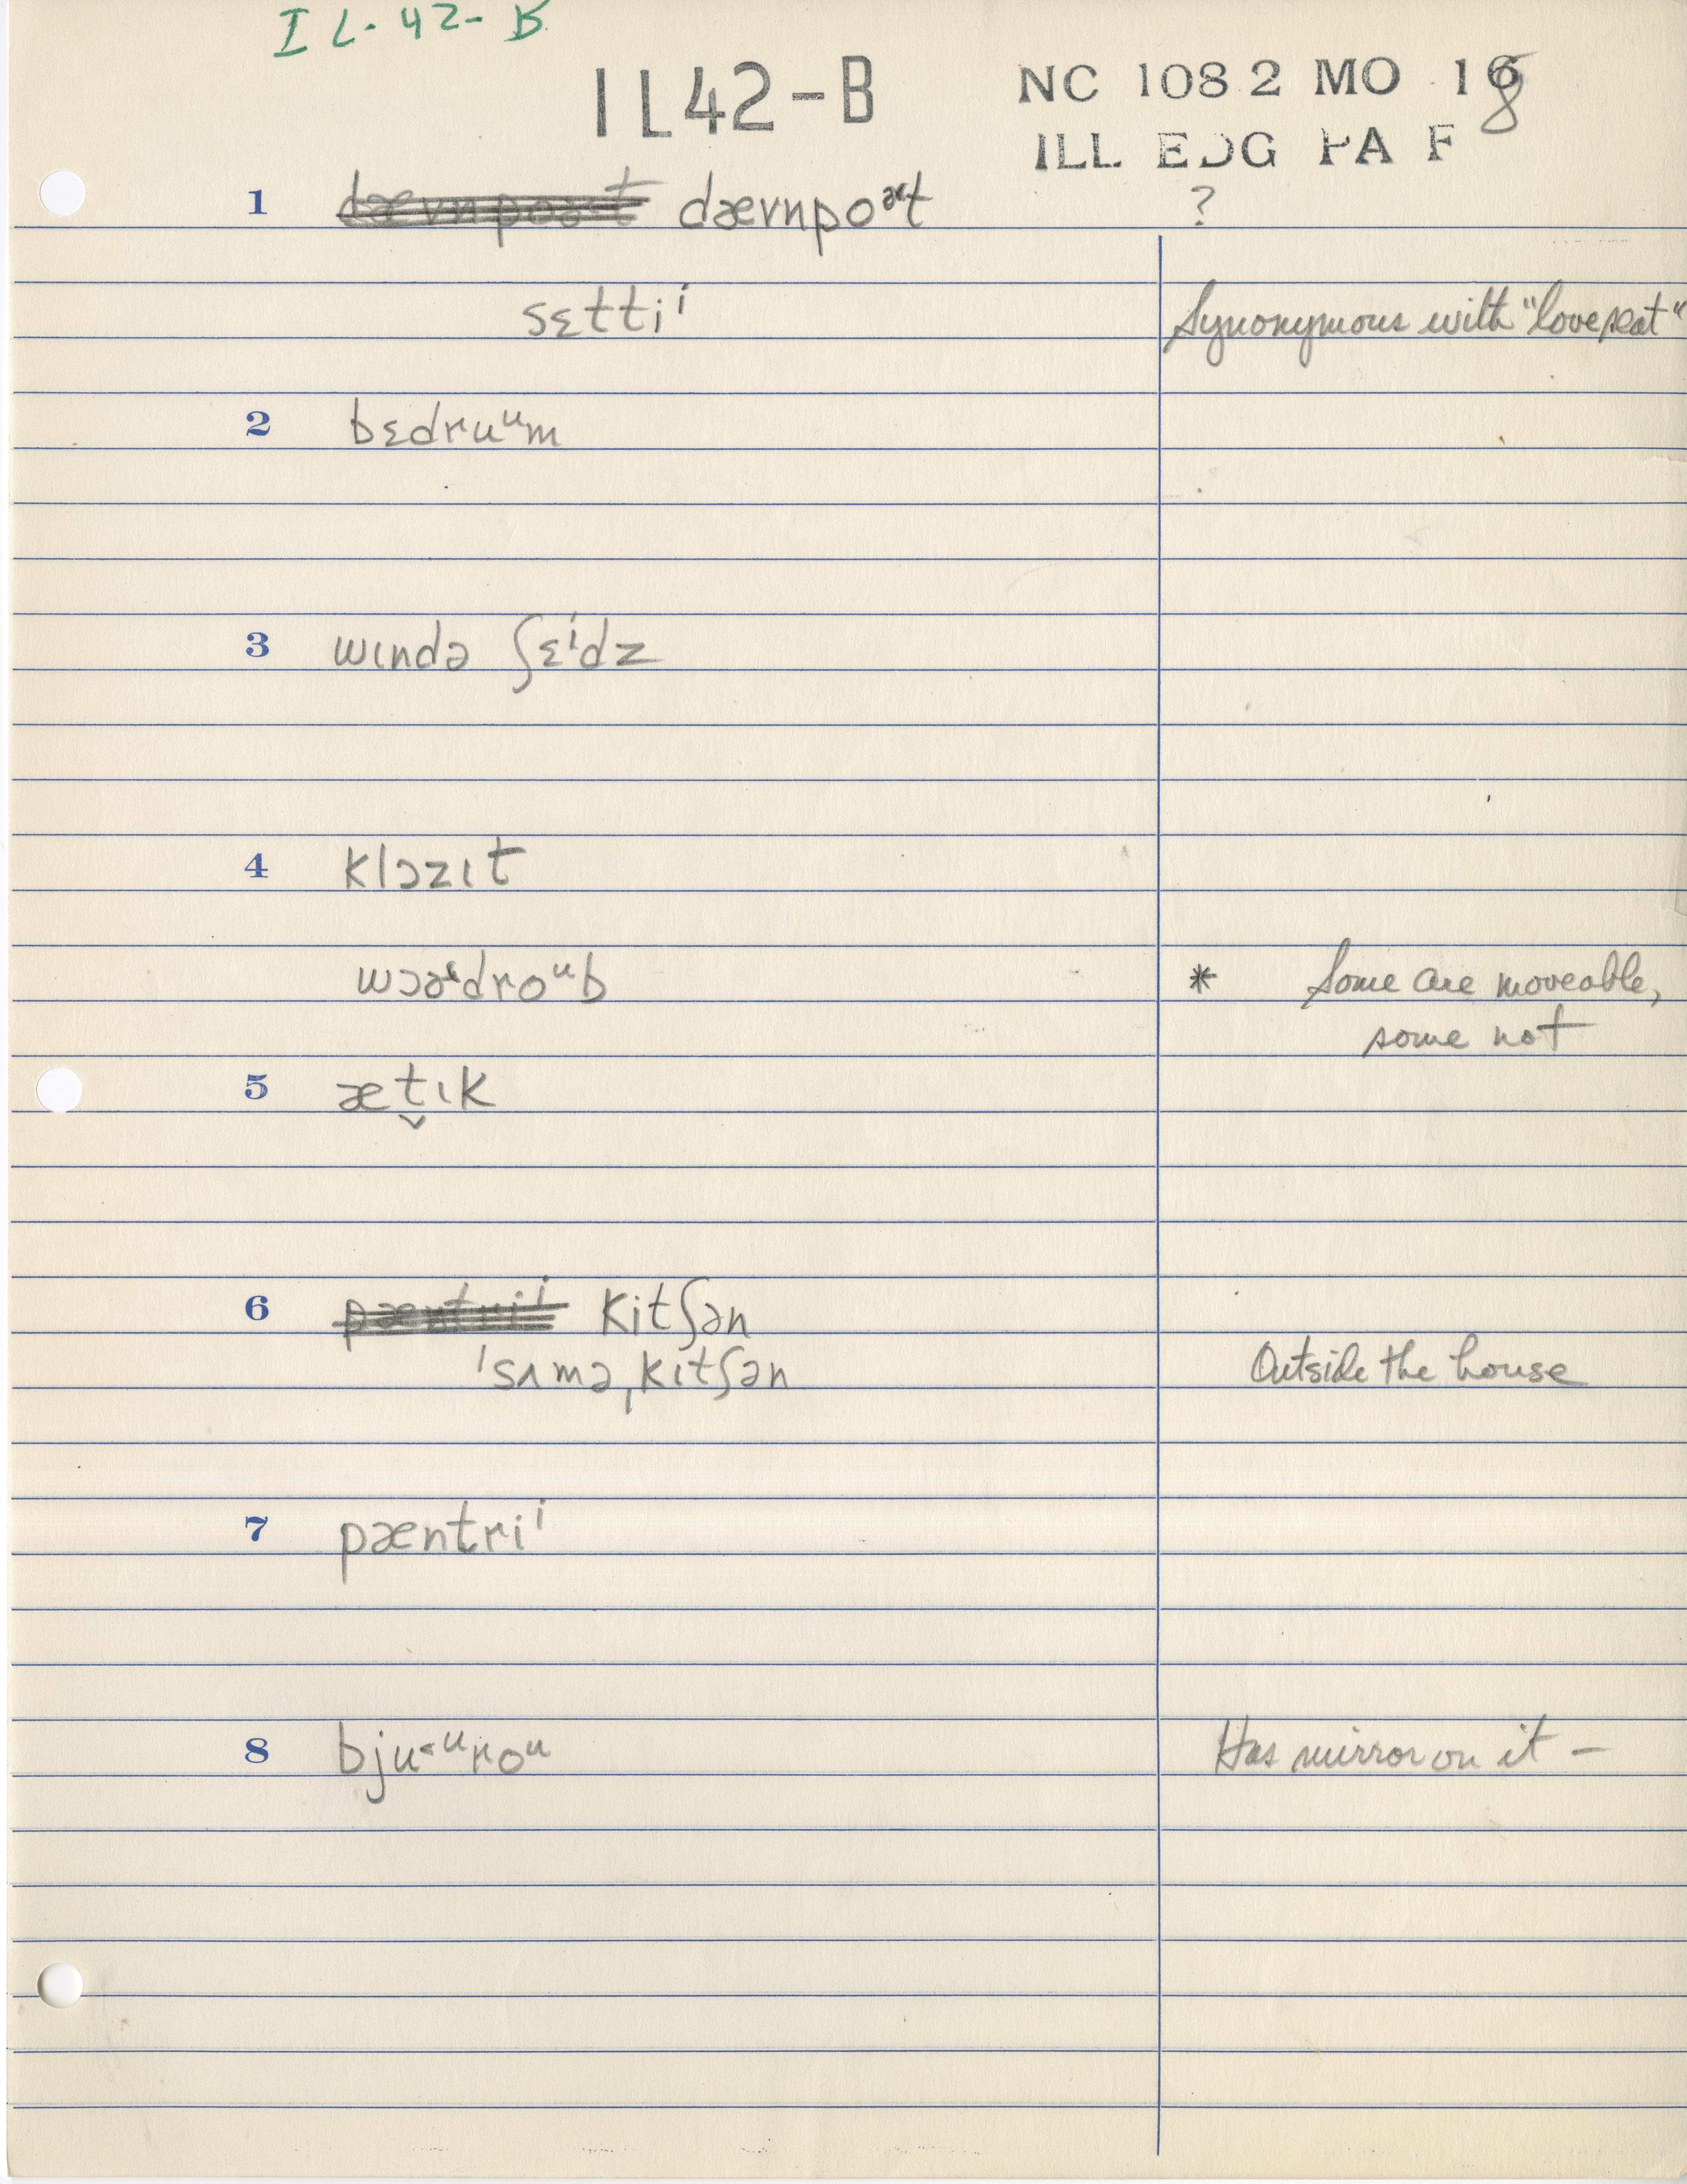 IL-42-B
IL42-B NC 108 2 MO 18
ILL EDG PA F
1 dævnpoɚt ?
sɛttiⁱ Synonymous with "loveseat"
2 bɛdruᵘm
3 wɪndə ʃɛⁱdz
4 klɔzɪt
wɔɚdroᵘb * Some are moveable,
some not
5 æt̬ɪk
6 kitʃən
ˈsʌmə ˌkɪtʃən Outside the house
7 pæntriⁱ
8 bju˂ᵘroᵘ Has mirror on it –